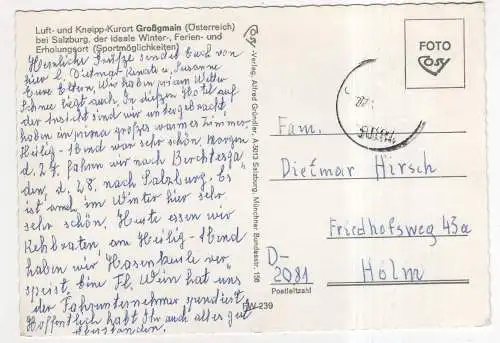 Luft- und Kneipp-Kurort Großgmain (Österreich)
bei Salzburg, der ideale Winter-, Ferien- und
Erholungsort (Sportmöglichkeiten)
Herzliche Grüße sendet Euch von
hier l. Dietmar Renate u. Susanne
Eure Eltern. Wir haben prima Wetter
Schnee liegt auch. In diesem Hotel auf
der Ansicht sind wir untergebracht
haben ein prima großes warmes Zimmer.
Heilig-Abend war sehr schön. Morgen
d. 27. fahren wir nach Berchtesga
den, d. 28. nach Salzburg. Es
ist auch im Winter hier sehr
sehr schön. Heute essen wir
Rehbraten am Heilig-Abend
haben wir Hasenkeule ver
speist. eine Fl. Wein hat uns
der Fahrunternehmer spendiert
Hoffentlich habt Ihr auch alles gut
überstanden.
ÖSV-Verlag, Alfred Gründler, A 5013 Salzburg, Münchner Bundesstr. 156
FOTO
ÖSV
Fam.
Dietmar Hirsch
Friedhofsweg 43a
D-
2081
Holm
Postleitzahl
RW-239